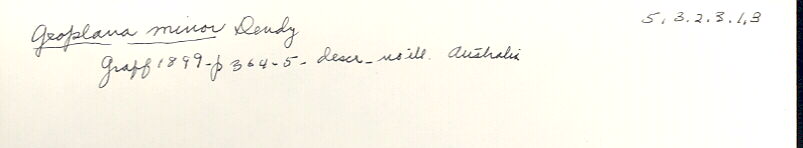 Geoplana minor Dendy 5.3.2.3.1.3
Graff 1899-p 364-5- descr_ no ill. Australia